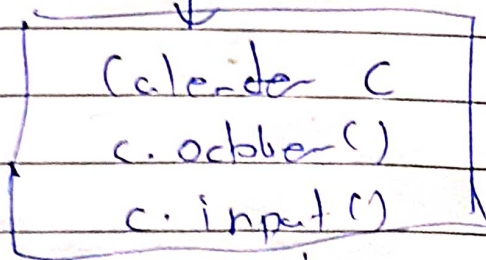 Calender C
c. october()
c. input()